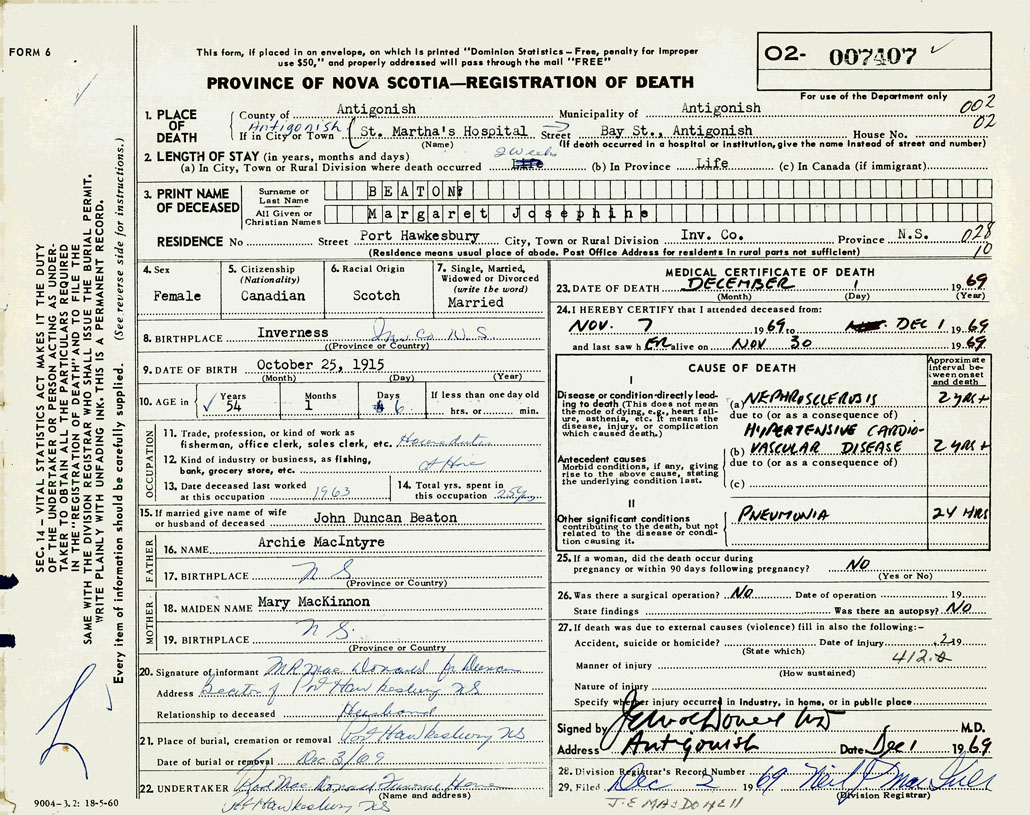 FORM 6
This form, if placed in an envelope, on which is printed "Dominion Statistics – Free, penalty for improper
use $50," and properly addressed will pass through the mail "FREE"
PROVINCE OF NOVA SCOTIA—REGISTRATION OF DEATH
O2- 007407
For use of the Department only
002
02
1. PLACE OF DEATH
County of Antigonish Municipality of Antigonish
Antigonish
If in City or Town St. Martha's Hospital Street Bay St., Antigonish House No.
(Name) (If death occurred in a hospital or institution, give the name instead of street and number)
2. LENGTH OF STAY (in years, months and days)
2 Weeks
(a) In City, Town or Rural Division where death occurred Life (b) In Province Life (c) In Canada (if immigrant)
3. PRINT NAME OF DECEASED
Surname or Last Name BEATON
All Given or Christian Names Margaret Josephine
RESIDENCE No Street Port Hawkesbury City, Town or Rural Division Inv. Co. Province N.S. 028
10
(Residence means usual place of abode. Post Office Address for residents in rural parts not sufficient)
4. Sex
Female
5. Citizenship
(Nationality)
Canadian
6. Racial Origin
Scotch
7. Single, Married,
Widowed or Divorced
(write the word)
Married
8. BIRTHPLACE Inverness Inv. Co. N.S.
(Province or Country)
9. DATE OF BIRTH October 25, 1915
(Month) (Day) (Year)
10. AGE in Years 54 Months 1 Days 6 If less than one day old
hrs. or min.
OCCUPATION
11. Trade, profession, or kind of work as
fisherman, office clerk, sales clerk, etc.
12. Kind of industry or business, as fishing,
bank, grocery store, etc.
13. Date deceased last worked
at this occupation 1963
14. Total yrs. spent in
this occupation 25 yrs
15. If married give name of wife
or husband of deceased John Duncan Beaton
FATHER
16. NAME Archie MacIntyre
17. BIRTHPLACE N S
(Province or Country)
MOTHER
18. MAIDEN NAME Mary MacKinnon
19. BIRTHPLACE N S.
(Province or Country)
20. Signature of informant
Address Port Hawkesbury NS
Relationship to deceased Husband
21. Place of burial, cremation or removal Port Hawkesbury NS
Date of burial or removal Dec 3/69
22. UNDERTAKER Mac Donald Funeral Home
(Name and address)
Pt Hawkesbury NS
9004–3.2: 18-5-60
MEDICAL CERTIFICATE OF DEATH
23. DATE OF DEATH DECEMBER 1 1969
(Month) (Day) (Year)
24. I HEREBY CERTIFY that I attended deceased from:
NOV. 7 1969 to DEC 1 1969
and last saw h ER alive on NOV 30 1969
CAUSE OF DEATH
Approximate interval between onset and death
I
Disease or condition directly leading to death (This does not mean the mode of dying, e.g., heart failure, asthenia, etc. It means the disease, injury, or complication which caused death.)
(a) NEPHROSCLEROSIS 2 YRS+
due to (or as a consequence of)
HYPERTENSIVE CARDIO-
(b) VASCULAR DISEASE 2 YRS+
due to (or as a consequence of)
(c)
Antecedent causes
Morbid conditions, if any, giving rise to the above cause, stating the underlying condition last.
II
Other significant conditions
contributing to the death, but not related to the disease or condition causing it.
PNEUMONIA 24 HRS
25. If a woman, did the death occur during
pregnancy or within 90 days following pregnancy? NO
(Yes or No)
26. Was there a surgical operation? NO Date of operation 19
State findings Was there an autopsy? NO
27. If death was due to external causes (violence) fill in also the following:–
Accident, suicide or homicide? Date of injury 19
(State which)
412.
Manner of injury
(How sustained)
Nature of injury
Specify whether injury occurred in industry, in home, or in public place
Signed by M.D.
Address Antigonish Date Dec 1 1969
28. Division Registrar's Record Number
29. Filed Dec 2 1969
(Division Registrar)
J.E MACDONELL
SEC. 14 – VITAL STATISTICS ACT MAKES IT THE DUTY
OF THE UNDERTAKER OR PERSON ACTING AS UNDER-
TAKER TO OBTAIN ALL THE PARTICULARS REQUIRED
IN THE "REGISTRATION OF DEATH" AND TO FILE THE
SAME WITH THE DIVISION REGISTRAR WHO SHALL ISSUE THE BURIAL PERMIT.
WRITE PLAINLY WITH UNFADING INK. THIS IS A PERMANENT RECORD.
Every item of information should be carefully supplied. (See reverse side for instructions.)